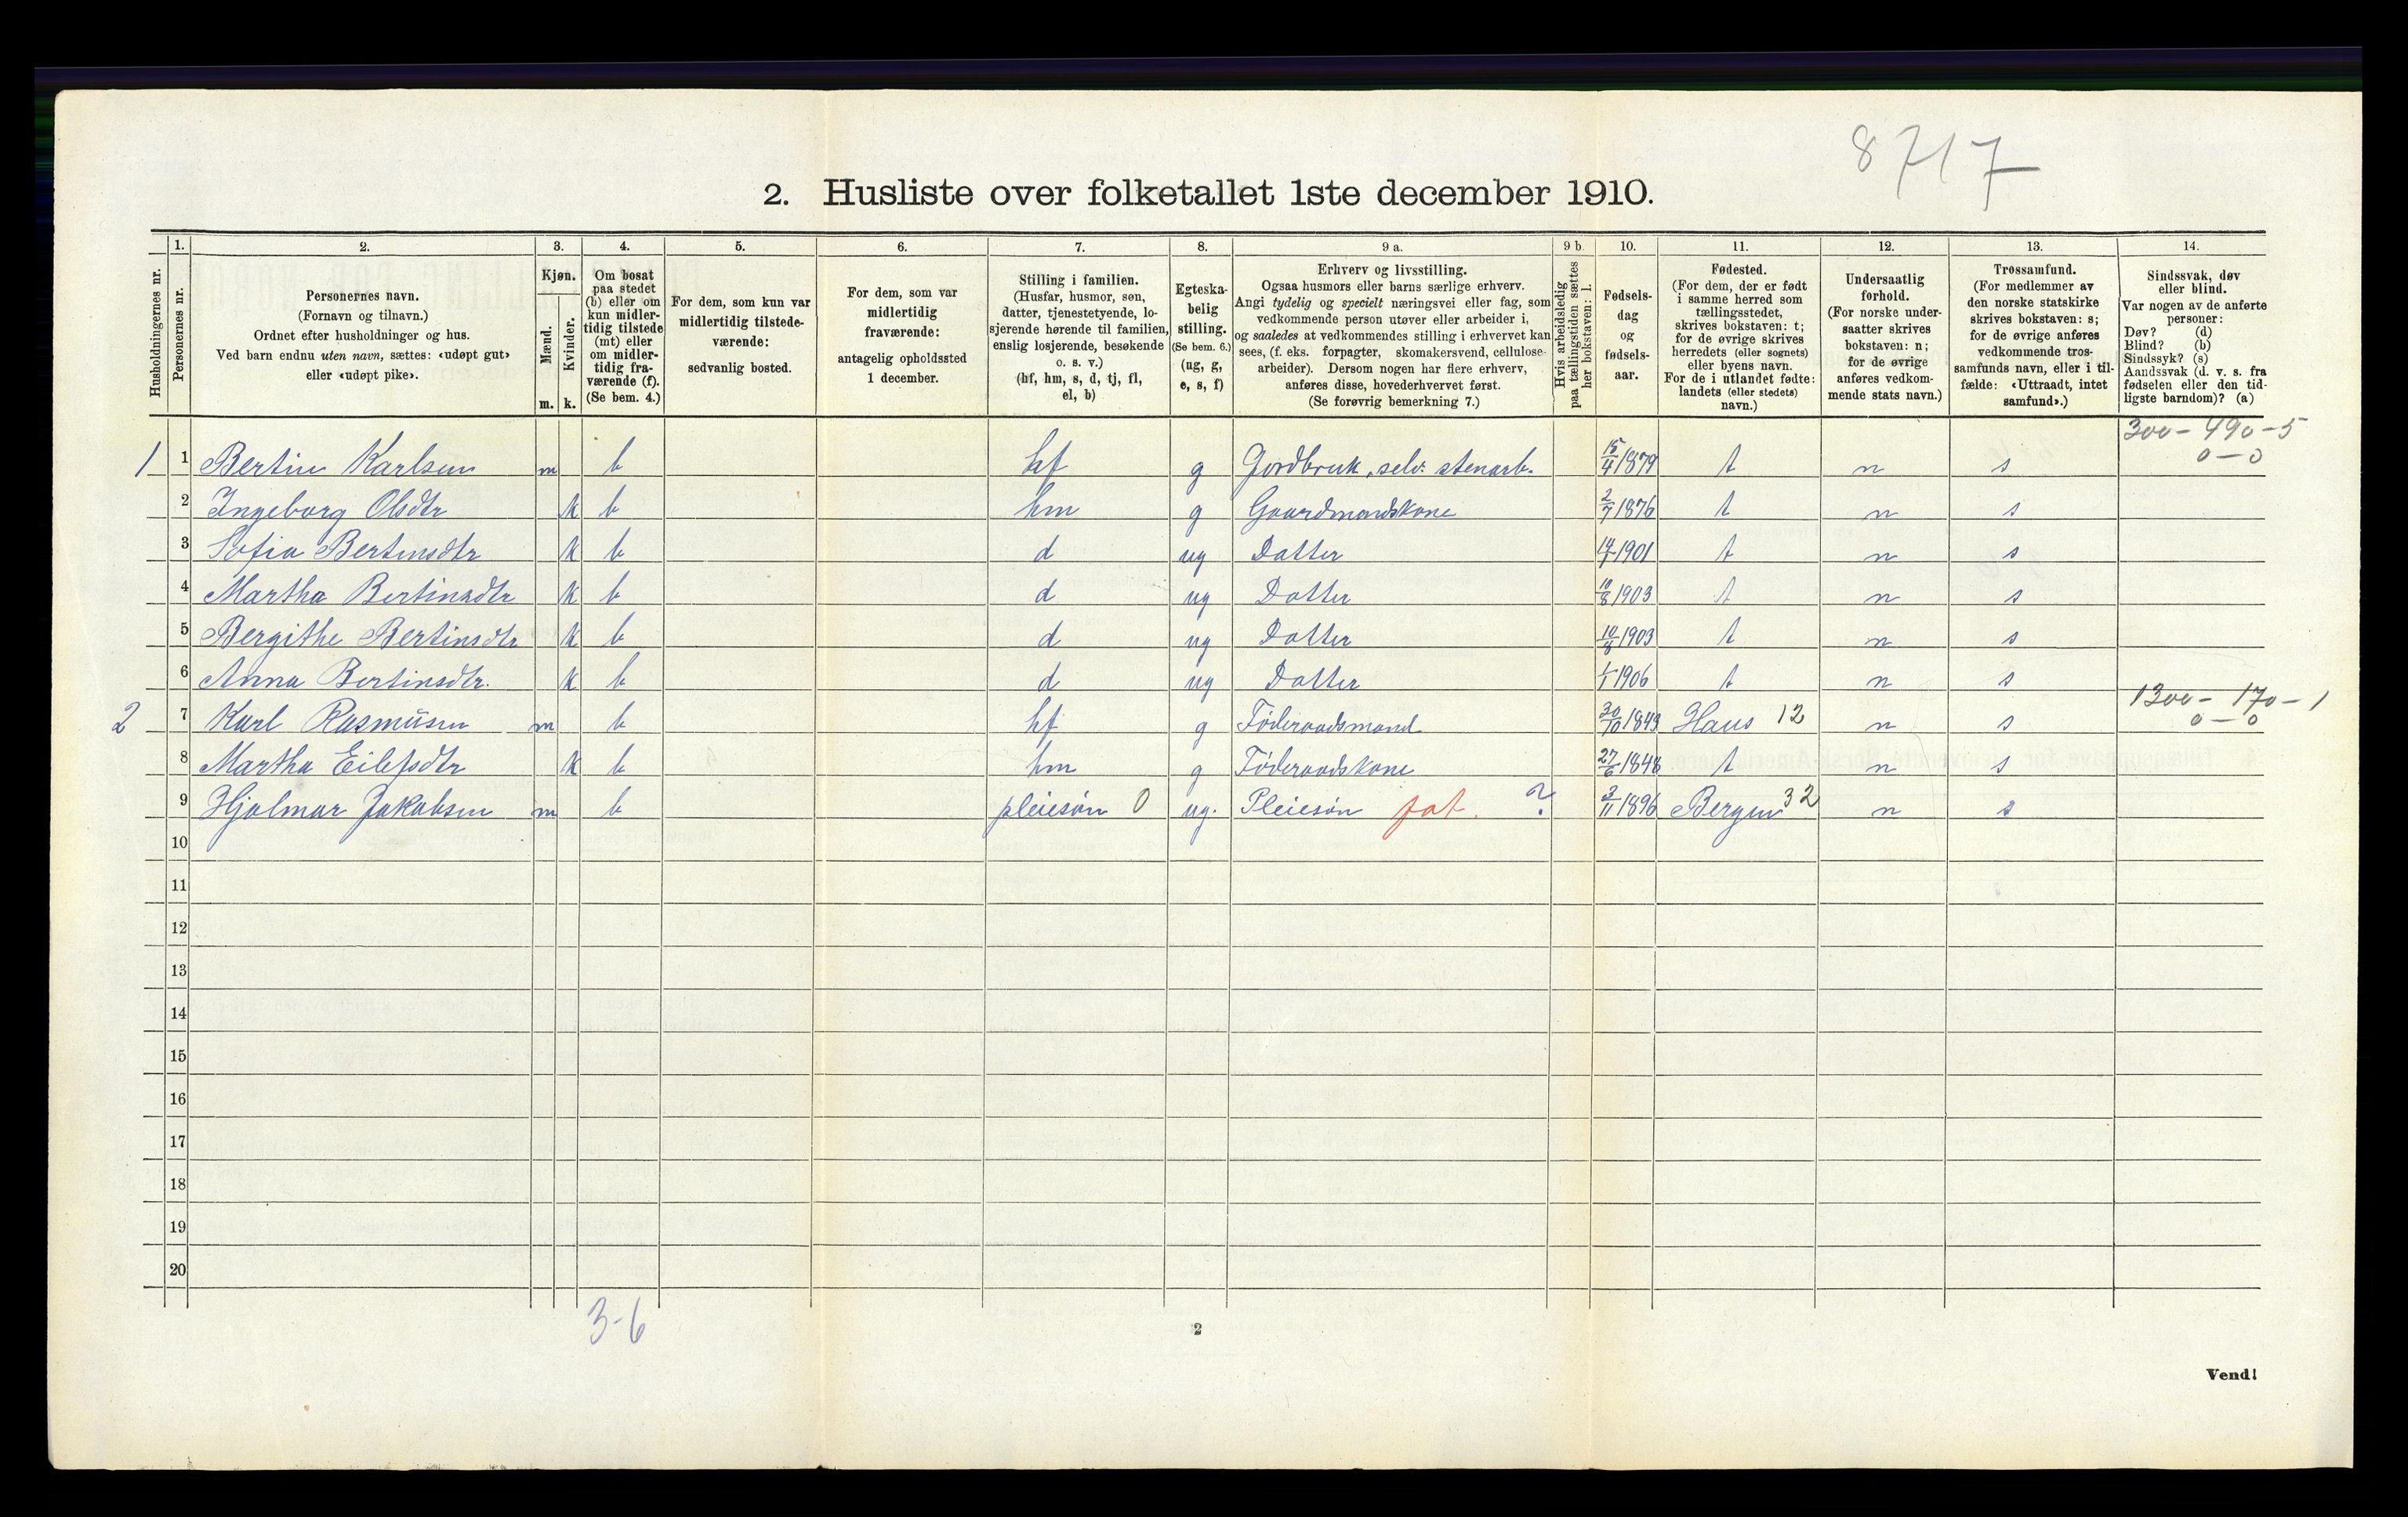 8717
2. Husliste over folketallet 1ste december 1910.
Husholdningernes nr.
1. Personernes nr.
2. Personernes navn.
(Fornavn og tilnavn.)
Ordnet efter husholdninger og hus.
Ved barn endnu uten navn, sættes: «udøpt gut»
eller «udøpt pike».
3. Kjøn.
Mænd. m.
Kvinder. k.
4. Om bosat
paa stedet
(b) eller om
kun midler-
tidig tilstede
(mt) eller
om midler-
tidig fra-
værende (f).
(Se bem. 4.)
5. For dem, som kun var
midlertidig tilstede-
værende:
sedvanlig bosted.
6. For dem, som var
midlertidig
fraværende:
antagelig opholdssted
1 december.
7. Stilling i familien.
(Husfar, husmor, søn,
datter, tjenestetyende, lo-
sjerende hørende til familien,
enslig losjerende, besøkende
o. s. v.)
(hf, hm, s, d, tj, fl,
el, b)
8. Egteska-
belig
stilling.
(Se bem. 6.)
(ug, g,
e, s, f)
9 a. Erhverv og livsstilling.
Ogsaa husmors eller barns særlige erhverv.
Angi tydelig og specielt næringsvei eller fag, som
vedkommende person utøver eller arbeider i,
og saaledes at vedkommendes stilling i erhvervet kan
sees, (f. eks. forpagter, skomakersvend, cellulose-
arbeider). Dersom nogen har flere erhverv,
anføres disse, hovederhvervet først.
(Se forøvrig bemerkning 7.)
9 b. Hvis arbeidsledig
paa tællingstiden sættes
her bokstaven: l.
10. Fødsels-
dag
og
fødsels-
aar.
11. Fødested.
(For dem, der er født
i samme herred som
tællingsstedet,
skrives bokstaven: t;
for de øvrige skrives
herredets (eller sognets)
eller byens navn.
For de i utlandet fødte:
landets (eller stedets)
navn.)
12. Undersaatlig
forhold.
(For norske under-
saatter skrives
bokstaven: n;
for de øvrige
anføres vedkom-
mende stats navn.)
13. Trossamfund.
(For medlemmer av
den norske statskirke
skrives bokstaven: s;
for de øvrige anføres
vedkommende tros-
samfunds navn, eller i til-
fælde: «Uttraadt, intet
samfund».)
14. Sindssvak, døv
eller blind.
Var nogen av de anførte
personer:
Døv? (d)
Blind? (b)
Sindssyk? (s)
Aandssvak (d. v. s. fra
fødselen eller den tid-
ligste barndom)? (a)
300 - 490 - 5
0 - 0
1 1 Bertin Karlsen m b hf g Jordbruk, selv. stenarb. 15/4 1879 t n s
2 Ingeborg Olsdtr k b hm g Gaardmandskone 2/7 1876 t n s
3 Sofia Bertinsdtr k b d ug Datter 1901 t n s
4 Martha Bertinsdtr k b d ug Datter 10/8 1903 t n s
5 Bergithe Bertinsdtr k b d ug Datter 10/8 1903 t n s
6 Anna Bertinsdtr. k b d ug Datter 1/1 1906 t n s
1300 - 170 - 1
0 - 0
2 7 Karl Rasmüsen m b hf g Føderaadsmand 30/10 1843 Haus 12 n s
8 Martha Eilefsdtr k b hm g Føderaadskone 27/6 1848 t n s
9 Hjalmar Jakobsen m b pleiesøn 0 ug. Pleiesøn fat. ? 3/11 1896 Bergen 32 n s
10
11
12
13
14
15
16
17
18
19
20
3-6
2
Vend!